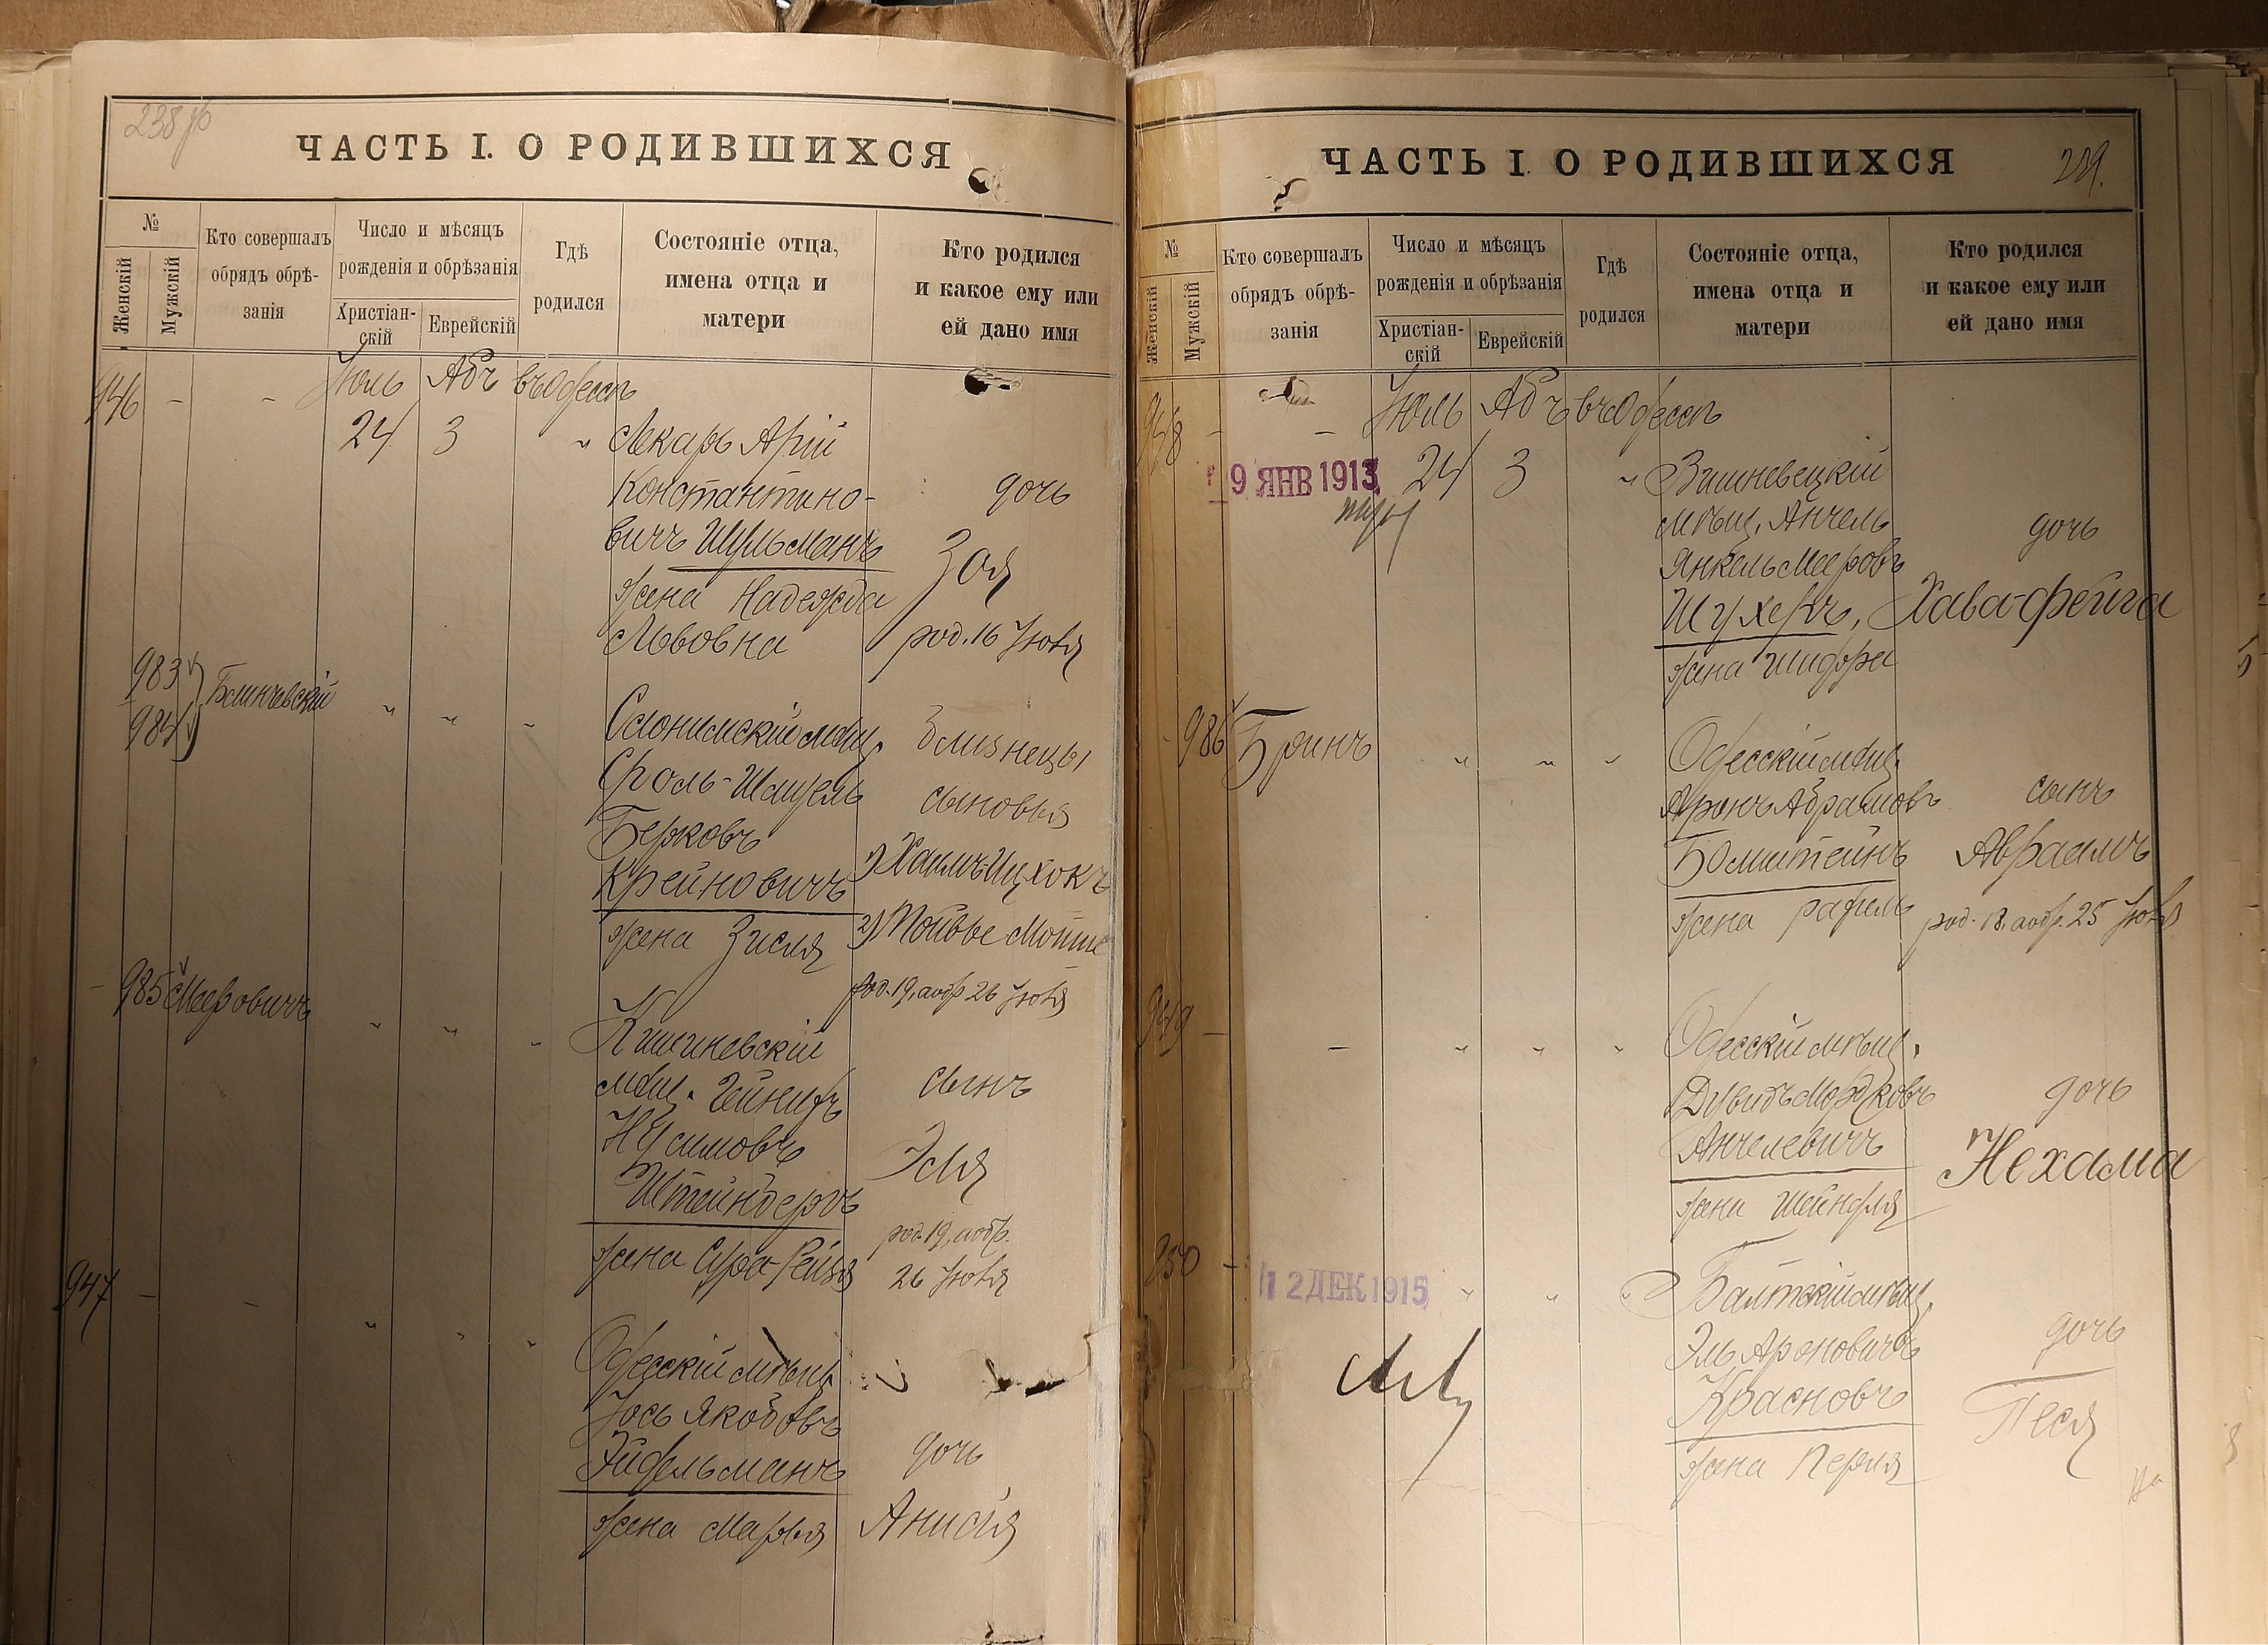 238 об
ЧАСТЬ I. О РОДИВШИХСЯ
№
Женскій
Мужскій
Кто совершалъ
обрядъ обрѣ-
занія
Число и мѣсяцъ
рожденія и обрѣзанія
Христіан-
скій
Еврейскій
Гдѣ
родился
Состояніе отца,
имена отца и
матери
Кто родился
и какое ему или
ей дано имя
946 - - Іюль Абъ въ Одессѣ
24 3 " Лекарь Арій
Константино-
вичъ Шульманъ
жена Надежда
Львовна
дочь
Зоя
род. 16 Іюля
983
984
Блинчевскій " " "
Слонимскій мѣщ.
Сроль-Шмуель
Берковъ
Крейновичъ
жена Зисля
близнецы
сыновья
1) Хаимъ-Ицхокъ
2) Тойвье Мотте
род. 19, а обр 26 Іюля
- 985 Меровичъ " " "
Кишиневскій
мѣщ. Гейнихъ
Нусимовъ
Штейнбергъ
жена Сура-Рейзя
сынъ
Эля
род. 19, а обр.
26 Іюля
947 - - " " "
Одесскій мѣщ.
Іось Якобовъ
Эйдельманъ
жена Марья
дочь
Анисія
ЧАСТЬ I. О РОДИВШИХСЯ
239.
№
Женскій
Мужскій
Кто совершалъ
обрядъ обрѣ-
занія
Число и мѣсяцъ
рожденія и обрѣзанія
Христіан-
скій
Еврейскій
Гдѣ
родился
Состояніе отца,
имена отца и
матери
Кто родился
и какое ему или
ей дано имя
948 - - Іюль Абъ въ Одессѣ
9 ЯНВ 1913
24 3 " Вишневецкій
мѣщ. Анчель
Янкель Мееровъ
Шухеръ,
жена Шифра
дочь
Хава-Фейга
- 986 Бринъ " " "
Одесскій мѣщ.
Аронъ Абрамовъ
Бомштейнъ
жена Рахиль
сынъ
Авраамъ
род. 18, а обр. 25 Іюля
949 - - " " "
Одесскій мѣщ.
Давидъ Мордковъ
Анчелевичъ
жена Шейндля
дочь
Нехама
950 -
12 ДЕК 1915
" " "
Балтскій мѣщ.
Эль Ароновичъ
Красновъ
жена Перля
дочь
Песя